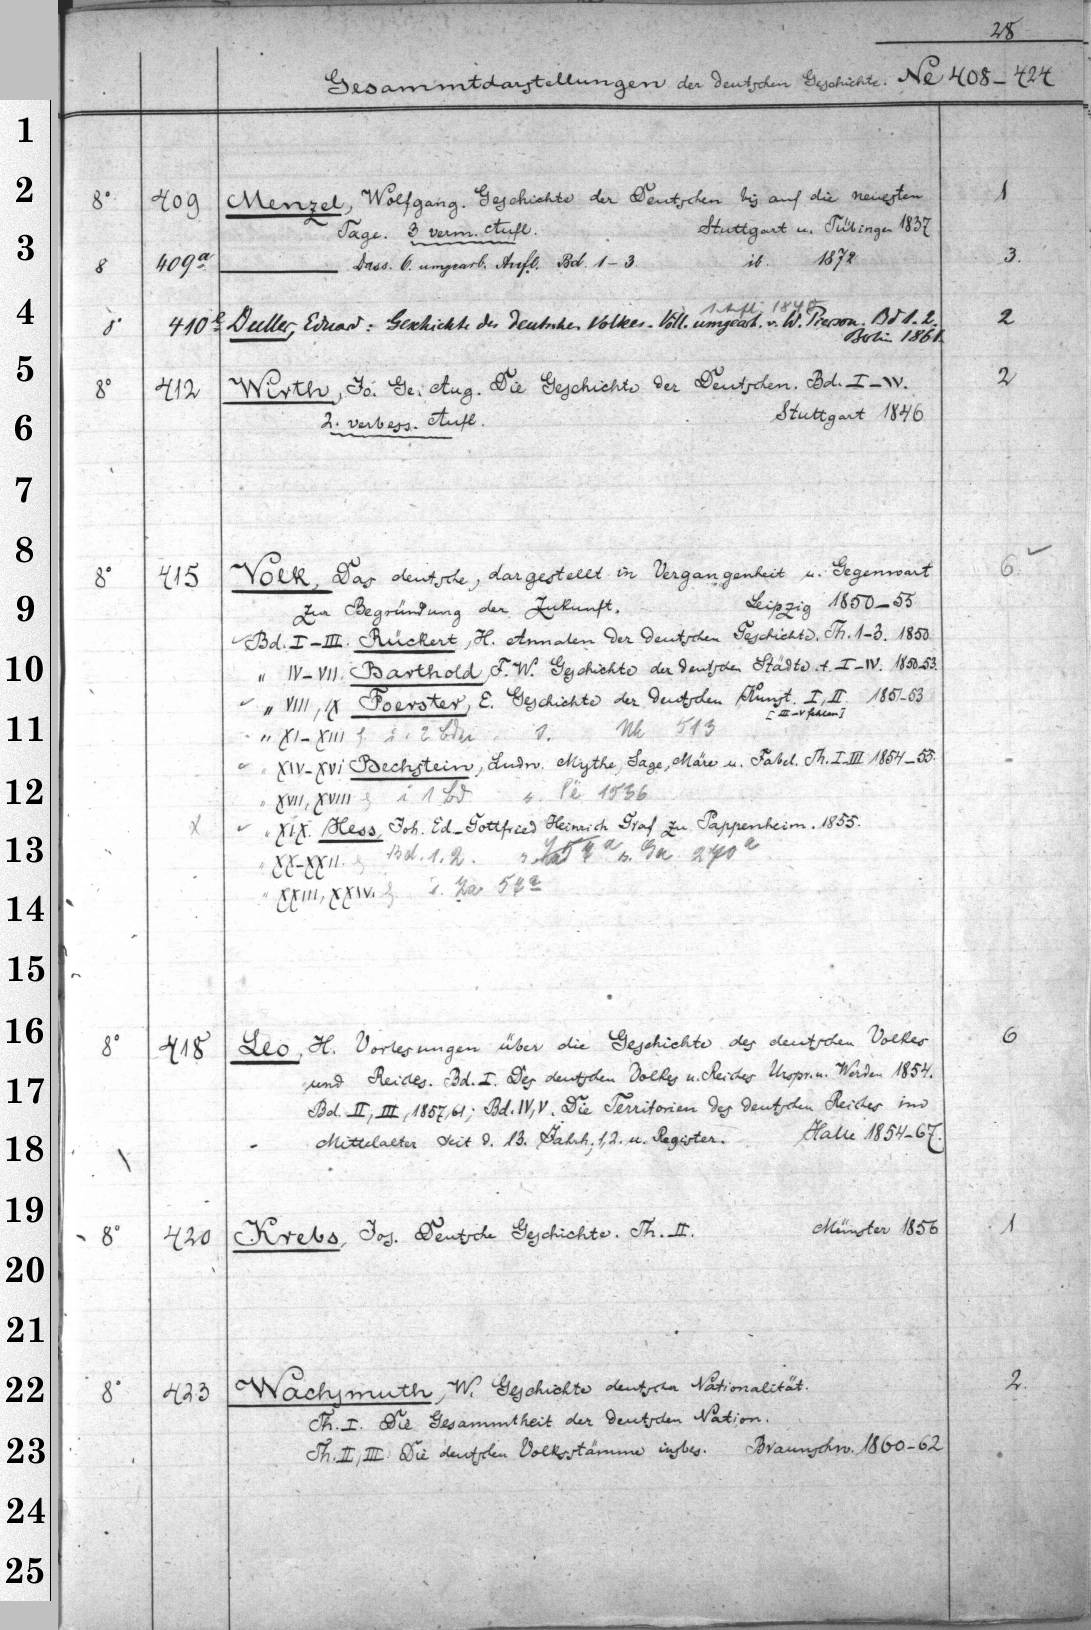 28
Gesammtdarstellungen der deutschen Geschichte. Ne 408-424
1
2 8° 409 Menzel, Wolfgang. Geschichte der Deutschen bis auf die neuesten 1
Tage. 3 verm. Aufl. Stuttgart u. Tübingen 1837
3 8 409a Dass. 6. umgearb. Aufl. Bd. 1-3. ib. 1872 3.
1. Aufl. 1840
4 8° 410 Duller, Eduard: Geschichte des deutschen Volkes. Völl. umgearb. v. W. Pierson. Bd 1. 2. 2
Berlin 1861.
5 8° 412 Wirth, Jo. Ge. Aug. Die Geschichte der Deutschen. Bd. I-IV. 2
6 2. verbess. Aufl. Stuttgart 1846
7
8 8° 415 Volk, Das deutsche, dargestellt in Vergangenheit u. Gegenwart 6.
9 zur Begründung der Zukunft. Leipzig 1850-55
Bd. I-III. Rückert, H. Annalen der deutschen Geschichte. Th. 1-3. 1850
10 " IV-VII. Barthold, F. W. Geschichte der deutschen Städte. t. I-IV. 1850-53.
" VIII, IX Foerster, E. Geschichte der deutschen Kunst. I, II. 1851-53
[III-V fehlen]
11 " XI-XIII 513
" XIV-XVI Bechstein, Ludw. Mythe, Sage, Märe u. Fabel. Th. I-III 1854-55.
12 " XVII, XVIII 1 Bd 1536
" XIX. Hess, Joh. Ed. Gottfried Heinrich Graf zu Pappenheim. 1855.
13 " XX-XXII. Bd. 1. 2. 270a
" XXIII, XXIV.
14
15
16 8° 418 Leo, H. Vorlesungen über die Geschichte des deutschen Volkes 6
17 und Reiches. Bd. I. Des deutschen Volkes u. Reiches Urspr. u. Werden 1854.
Bd. II, III, 1857, 61; Bd. IV, V. Die Territorien des deutschen Reiches im
18 Mittelalter seit d. 13. Jahrh. 1, 2. u. Register. Halle 1854-67.
19 8° 420 Krebs, Jos. Deutsche Geschichte. Th. II. Münster 1856 1
20
21
22 8° 423 Wachsmuth, W. Geschichte deutscher Nationalität. 2.
Th. I. Die Gesammtheit der deutschen Nation.
23 Th. II, III. Die deutschen Volksstämme insbes. Braunschw. 1860-62
24
25